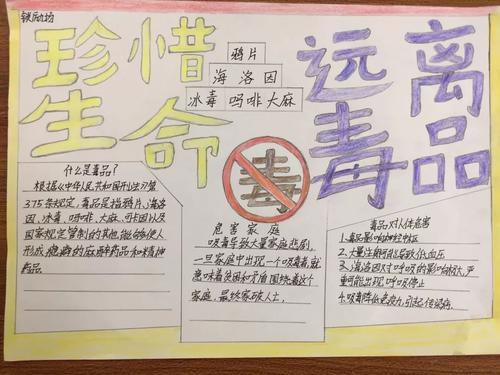 珍惜
生命
远离
毒品
鸦片
海洛因
冰毒 吗啡 大麻
毒
什么是毒品?
根据《中华人民共和国刑法》第
375条规定,毒品是指鸦片、海洛
因、冰毒、吗啡、大麻、可卡因以及
国家规定管制的其他能够使人
形成瘾癖的麻醉药品和精神
药品
危害家庭
吸毒导致大量家庭悲剧,
一旦家庭中出现一个吸毒者,就
意味着贫困和矛盾围绕着这个
家庭,最终家破人亡。
毒品对人体危害
1.毒品影响神经中枢
2.大量注射可能导致低血压
3.海洛因对呼吸的影响极大,严
重可能出现呼吸停止
4.吸毒降低免疫力,引起传染病。